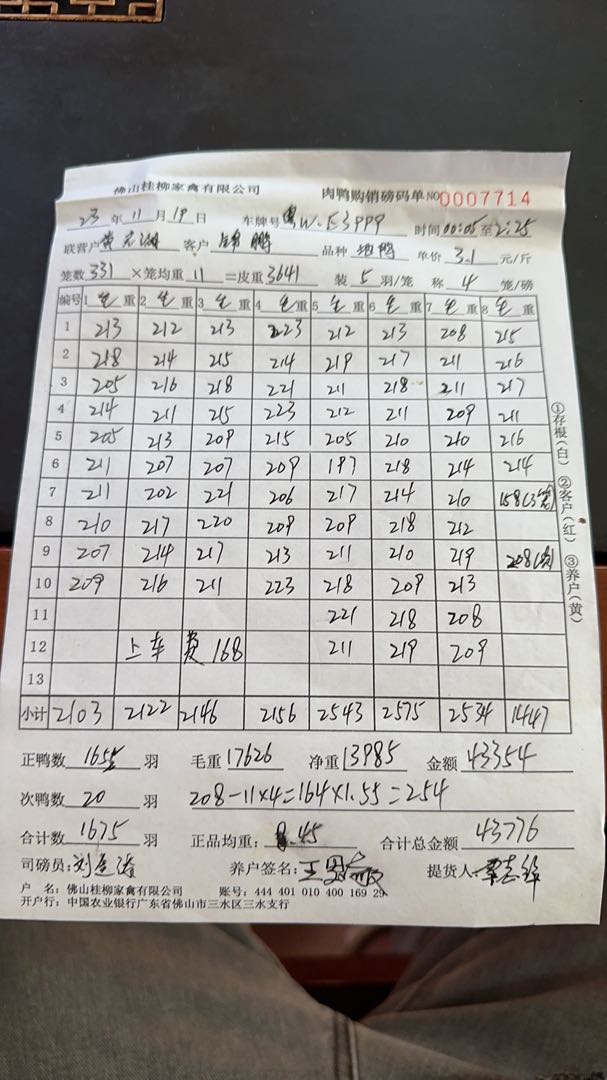 佛山桂柳家禽有限公司 肉鸭购销磅码单 NO 0007714
23 年 11 月 19 日 车牌号 粤W·E3999 时间 00:05 至 2:25
联营户 客户 鹏 品种 单价 3.1 元/斤
笼数 331 ×笼均重 11 =皮重 3641 装 5 羽/笼 称 4 笼/磅
编号 1 毛 重 2 毛 重 3 毛 重 4 毛 重 5 毛 重 6 毛 重 7 毛 重 8 毛 重
1 213 212 213 223 212 213 208 215
2 218 214 215 214 219 217 211 216
3 205 216 218 221 211 218 211 217
4 214 211 215 223 212 211 209 211
5 205 213 209 215 205 210 210 216
6 211 207 207 209 197 218 214 214
7 211 202 221 206 217 214 210 158(3笼)
8 210 217 220 209 209 218 212
9 207 214 217 213 211 210 219 208(次)
10 209 216 211 223 218 209 213
11 221 218 208
12 上车费 168 211 219 209
13
小计 2103 2122 2146 2156 2543 2575 2534 1447
正鸭数 1655 羽 毛重 17626 净重 13985 金额 43354
次鸭数 20 羽 208-11×4=164×1.55=254
合计数 1675 羽 正品均重: 8.45 合计总金额 43776
司磅员: 养户签名: 提货人
户 名: 佛山桂柳家禽有限公司 账号: 444 401 010 400 169 29
开户行: 中国农业银行广东省佛山市三水区三水支行
①存根(白) ②客户(红) ③养户(黄)